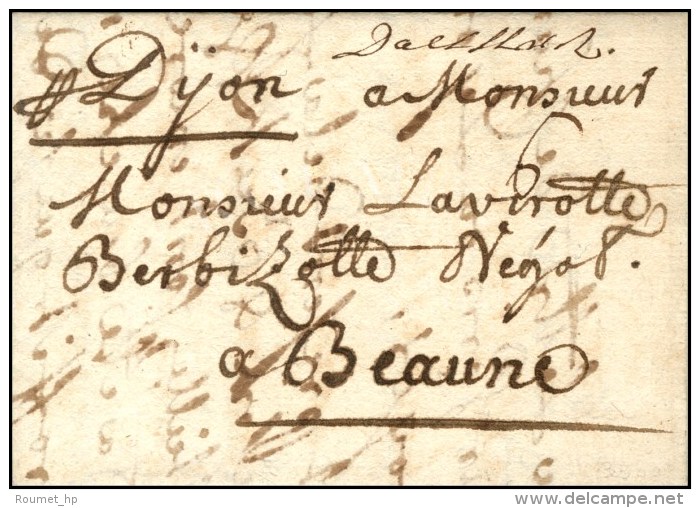 Dijon
a Monsieur
Monsieur Lavirotte
Berbizotte Negot.
a Beaune
Roumet_hp
www.delcampe.net